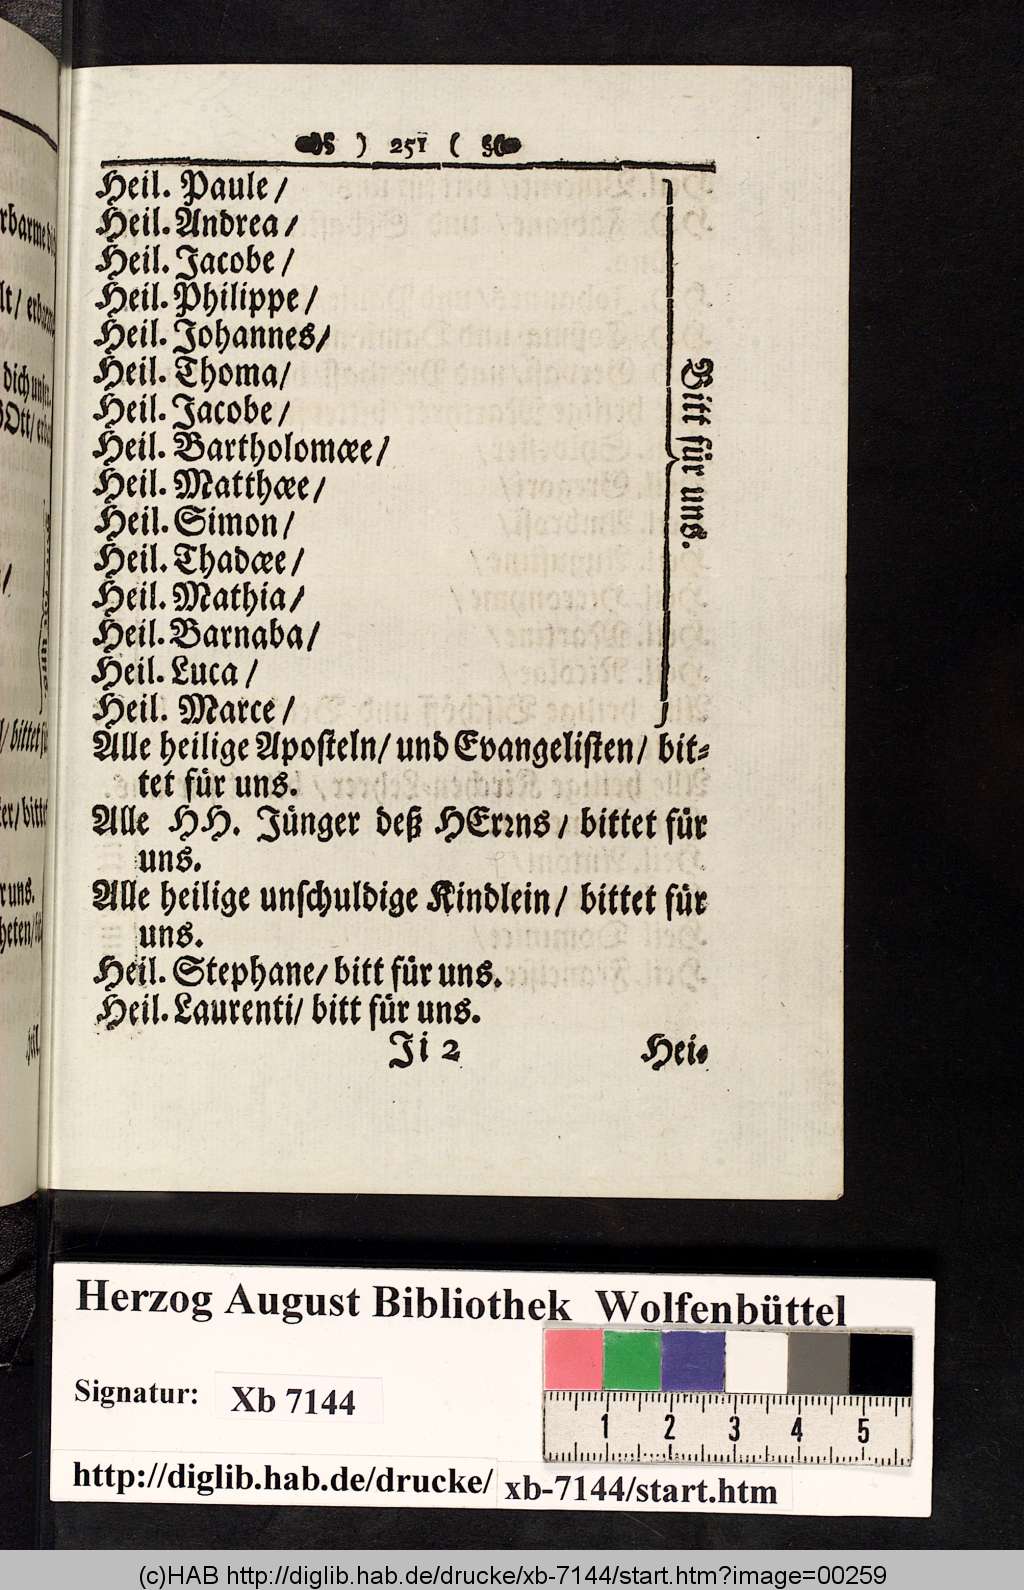 ) 251 (
Heil. Paule /
Heil. Andrea /
Heil. Jacobe /
Heil. Philippe /
Heil. Johannes/
Heil. Thoma/
Heil. Jacobe /
Heil. Bartholomæe /
Heil. Matthæe /
Heil. Simon /
Heil. Thadæe /
Heil. Mathia /
Heil. Barnaba /
Heil. Luca /
Heil. Marce /
Bitt für uns.
Alle heilige Aposteln/ und Evangelisten/ bit-
tet für uns.
Alle HH. Jünger deß HErrns / bittet für
uns.
Alle heilige unschuldige Kindlein / bittet für
uns.
Heil. Stephane/ bitt für uns.
Heil. Laurenti/ bitt für uns.
Ji 2 Hei-
Herzog August Bibliothek Wolfenbüttel
Signatur: Xb 7144
1 2 3 4 5
http://diglib.hab.de/drucke/ xb-7144/start.htm
(c)HAB http://diglib.hab.de/drucke/xb-7144/start.htm?image=00259